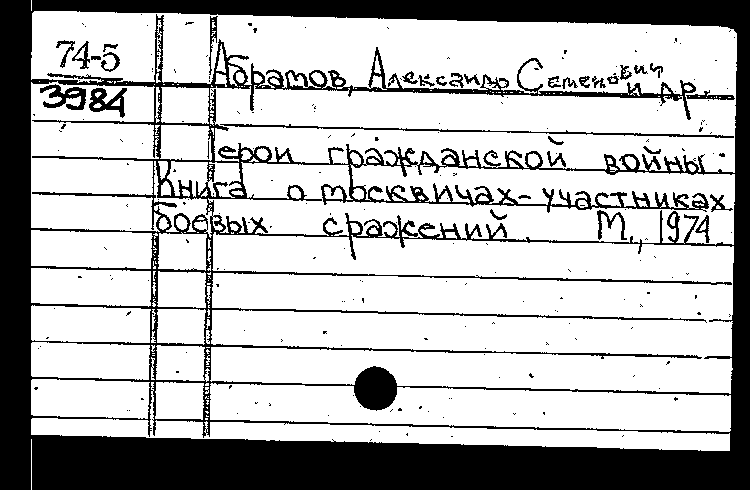 74-5
3984
Абрамов, Александр Семенович
и др.
Герои гражданской войны:
Книга о москвичах-участниках
боевых сражений. М., 1974